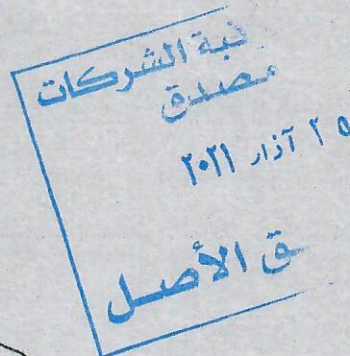 قبة الشركات
مصدق
٢٥ آذار ٢٠٢١
ق الأصل